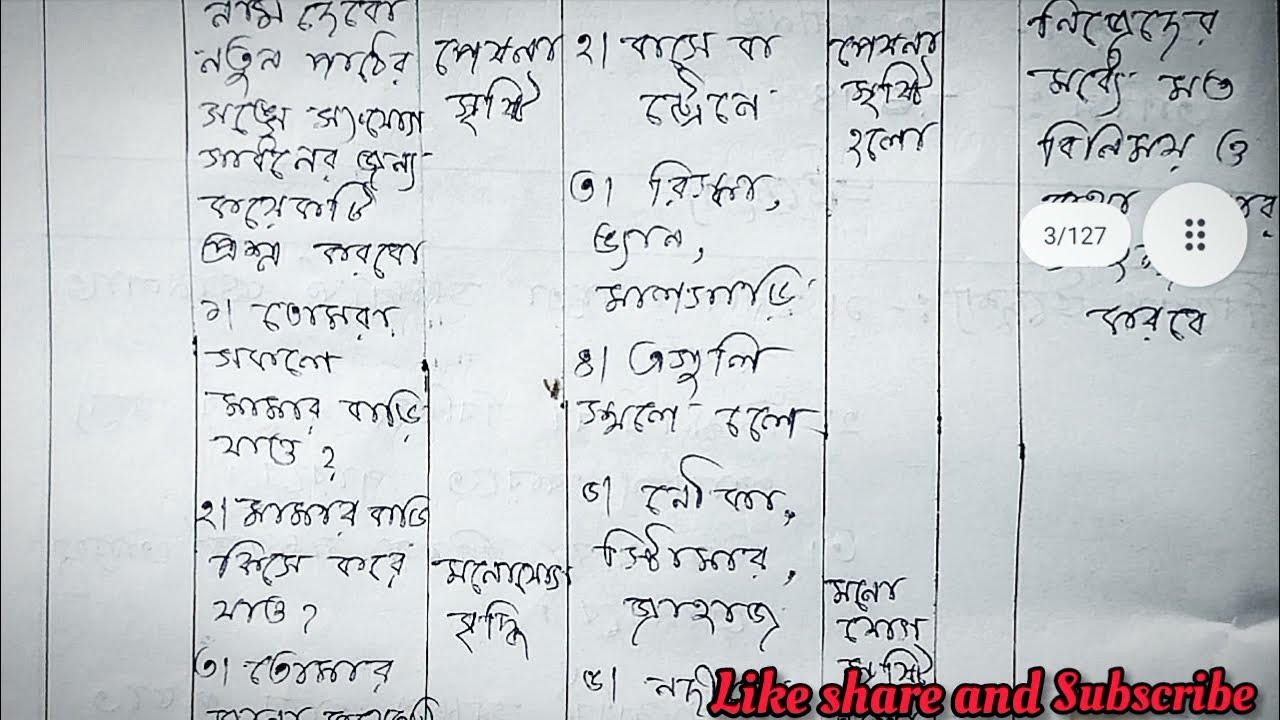 নাম দেবো
নতুন পাঠের
সঙ্গে সংযোগ
সাধনের জন্য
কয়েকটি
প্রশ্ন করবো
১। তোমরা
সকলে
মামার বাড়ি
যাও?
২। মামার বাড়ি
কিসে করে
যাও?
৩। তোমার
প্রেষনা
সৃষ্টি
মনোযোগ
বৃদ্ধি
২। বাসে বা
ট্রেনে
৩। রিক্সা,
ভ্যান,
মালগাড়ি
৪। এগুলি
স্থলে চলে
৫। নৌকা,
স্টিমার,
জাহাজ
৬।
প্রেষনা
সৃষ্টি
হলো
মনো
যোগ
নিজেদের
মধ্যে মত
বিনিময় ও
করবে
3/127
Like share and Subscribe